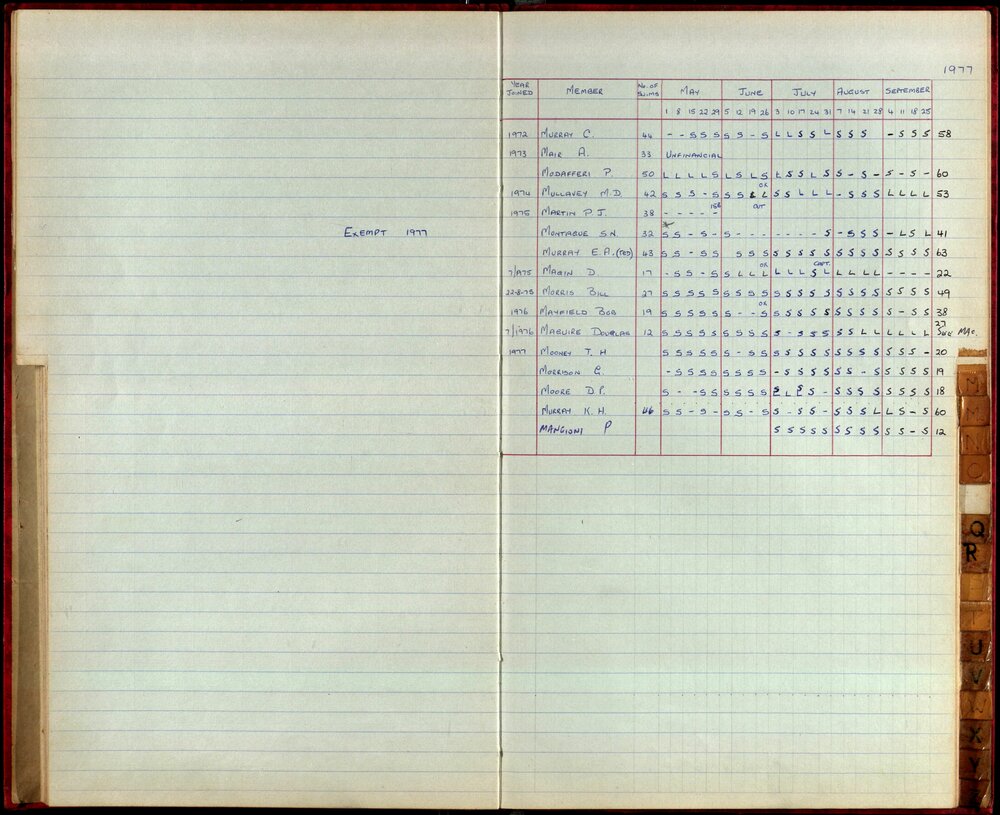 1977
YEAR JOINED MEMBER No. OF SWIMS MAY JUNE JULY AUGUST SEPTEMBER
1 8 15 22 29 5 12 19 26 3 10 17 24 31 7 14 21 28 4 11 18 25
1972 MURRAY C. 44 - - S S S S S - S L L S S L S S S - S S S 58
1973 MAIR A. 33 UNFINANCIAL
MODAFFERI P. 50 L L L L S L S L S L S S L S S - S - S - S - 60
OK
1974 MULLAVEY M.D. 42 S S S - S S S L L S S L L L - S S S L L L L 53
158 OUT
1975 MARTIN P.J. 38 - - - - -
EXEMPT 1977 MONTAGUE S.N. 32 S S - S - S - - - - - - S S - S S S - L S L 41
MURRAY E.A. (TED) 43 S S - S S S S S S S S S S S S S S S S S S 63
OK CAPT.
7/1975 MAGIN D. 17 - S S - S S L L L L L L S L L L L L - - - - 22
22-8-75 MORRIS BILL 27 S S S S S S S S S S S S S S S S S S S S S S 49
OK
1976 MAYFIELD BOB 19 S S S S S S - - S S S S S S S S S S S - S S 38
7/1976 MAGUIRE DOUGLAS 12 S S S S S S S S S S - S S S S S L L L L L L 37 SEE MAC.
1977 MOONEY T. H S S S S S S - S S S S S S S S S S S S S S - 20
MORRISON G. - S S S S S S S S - S S S S S S - S S S S S 19
MOORE D.P. S - - S S S S S S S L S S - S S S S S S S S 18
MURRAY K. H. 46 S S - S - S S - S S - S S - S S S L L S - S 60
MANGIONI P S S S S S S S S S S S - S 12
M
M
N
O
Q
R
T
U
V
W
X
Y